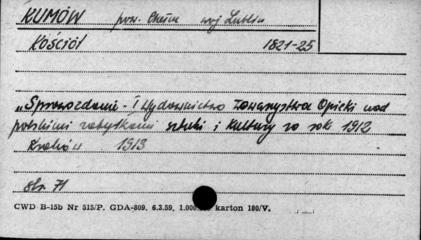 KUMÓW pow. Chełm woj Lublin
Kościół 1821-25
"Sprawozdanie - i Wydawnictwo Towarzystwa Opieki nad
polskimi zabytkami sztuki i kultury za rok 1912
Kraków 1913
Str. 71
CWD B-15b Nr 515/P. GDA-809. 6.3.59. 1.000 karton 180/V.